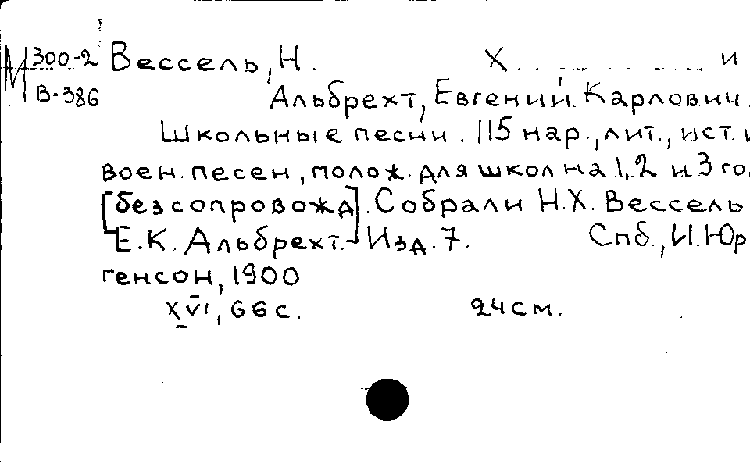 М 300-2 Вессель, Н. Х. . . . . . . . . . и
В-386 Альбрехт, Евгений Карлович.
Школьные песни. 115 нар., лит., ист. и
воен. песен, полож. для школ на 1, 2 и 3 го
[без сопровожд]. Собрали Н.Х. Вессель
Е.К. Альбрехт. Изд. 7. Спб., И. Юр
генсон, 1900
XVI, 66 с. 24 см.